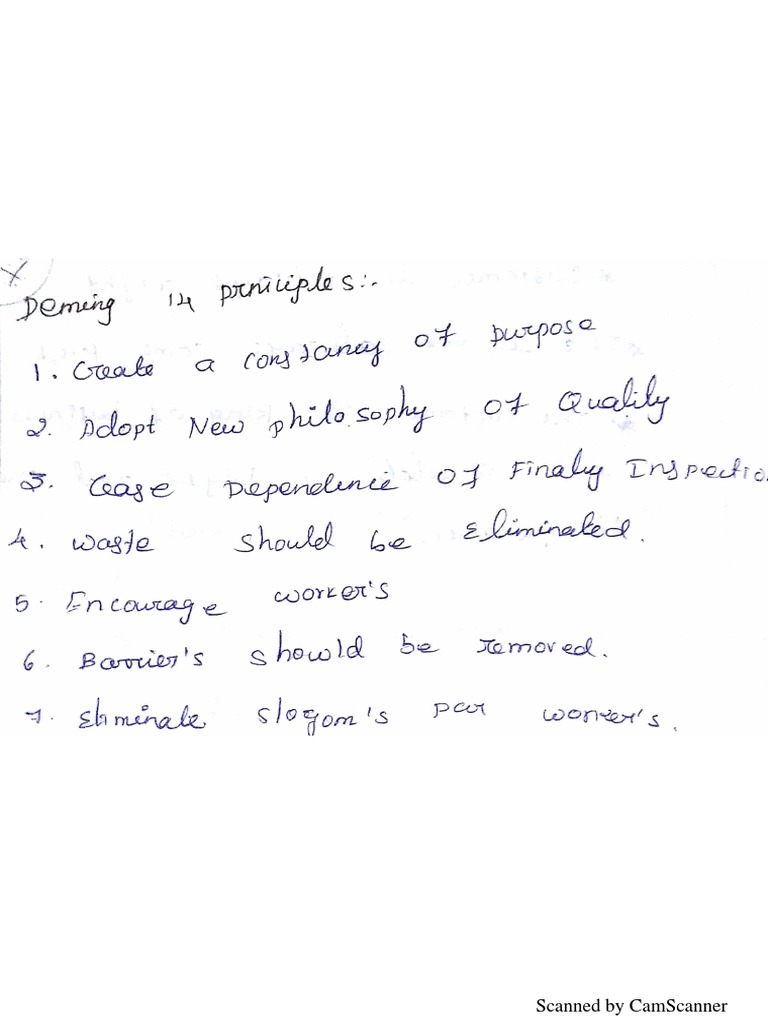 Deming 14 prniciples:-
1. Create a constancy of purpose
2. Adopt New philosophy of Quality
3. Cease Dependence of Finaly Inspectio
4. Waste should be Eliminated.
5. Encourage worker's
6. Barrier's should be removed.
7. Eliminate slogom's per worker's.
Scanned by CamScanner